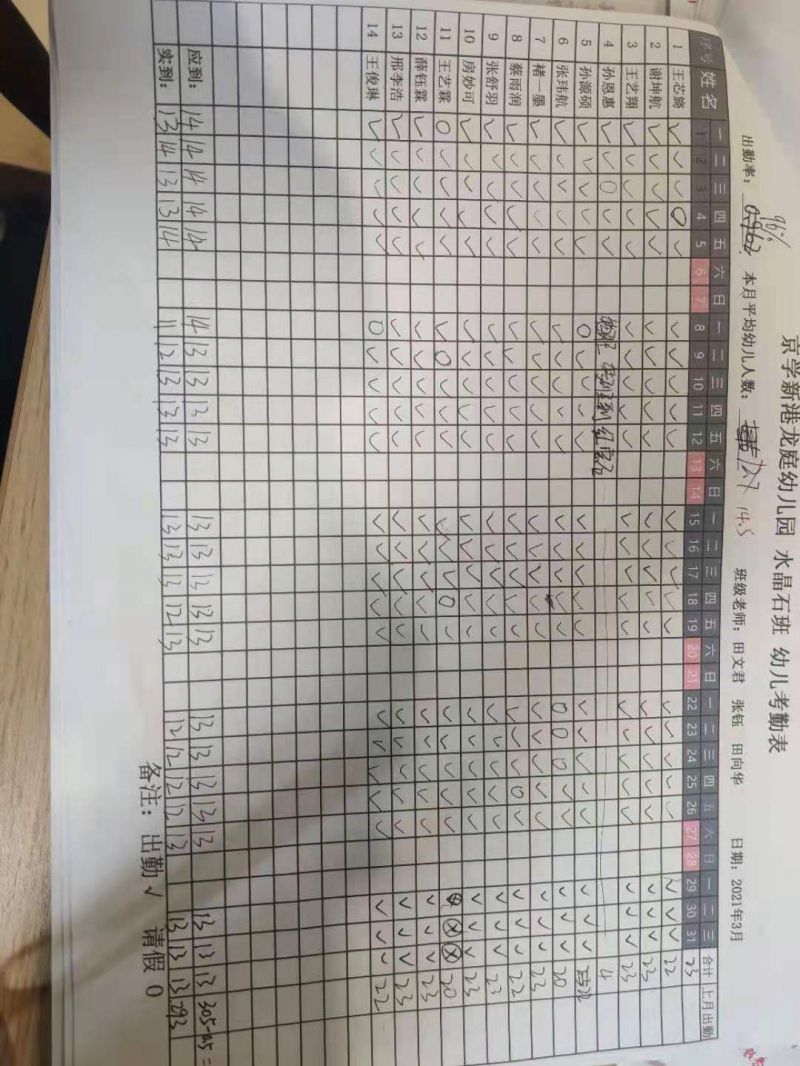 京学新港龙庭幼儿园 水晶石班 幼儿考勤表
出勤率： 96% 本月平均幼儿人数： 12.7 14.5 班级老师：田文君 张钰 田向华 日期：2021年3月
序号 姓名 一 二 三 四 五 六 日 一 二 三 四 五 六 日 一 二 三 四 五 六 日 一 二 三 四 五 六 日 一 二 三 合计 上月出勤
1 2 3 4 5 6 7 8 9 10 11 12 13 14 15 16 17 18 19 20 21 22 23 24 25 26 27 28 29 30 31 23
1 王芯旖 √ √ √ 0 √ √ √ √ √ √ √ √ √ √ √ √ √ √ √ √ √ √ √ 22
2 谢坤航 √ √ √ √ √ √ √ √ √ √ √ √ √ √ √ √ √ √ √ √ √ √ √ 23
3 王艺翔 √ √ √ √ √ √ √ √ √ √ √ √ √ √ √ √ √ √ √ √ √ √ √ 23
4 孙恩惠 √ √ 0 √ √ 4
5 孙源硕 √ √ √ √ √ 0 √ √ √ √ √ √ √ √ √ √ √ √ √ √ √ √ √
6 张玮航 √ √ √ √ √ √ √ √ √ √ √ √ √ √ √ 0 0 0 √ √ √ √ √ 20
7 褚一墨 √ √ √ √ √ √ √ √ √ √ √ √ √ √ √ √ √ √ √ √ √ √ √ 23
8 蔡雨润 √ √ √ √ √ √ √ √ √ √ √ √ √ √ √ √ √ √ 0 √ √ √ √ 22
9 张舒羽 √ √ √ √ √ √ √ √ √ √ √ √ √ √ √ √ √ √ √ √ √ √ √ 23
10 房妙可 √ √ √ √ √ √ √ √ √ √ √ √ √ √ √ √ √ √ √ √ √ √ √ 23
11 王艺霖 0 √ √ √ √ √ 0 √ √ √ √ √ √ 0 √ √ √ √ √ √ ⊗ ⊗ ⊗ 20
12 薛钰霖 √ √ √ √ √ √ √ √ √ √ √ √ √ √ √ √ √ √ √ √ √ √ √ 23
13 邢李浩 √ √ √ √ √ √ √ √ √ √ √ √ √ √ √ √ √ √ √ √ √ √ √ 23
14 王俊琳 √ √ √ √ √ 0 √ √ √ √ √ √ √ √ √ √ √ √ √ √ √ √ √ 22
应到： 14 14 14 14 14 14 13 13 13 13 13 13 13 13 13 13 13 13 13 13 13 13 13
实到： 13 14 13 13 14 11 12 13 13 13 13 13 13 12 13 12 12 12 12 13 13 13 13 293
备注：出勤 √ 请假 0